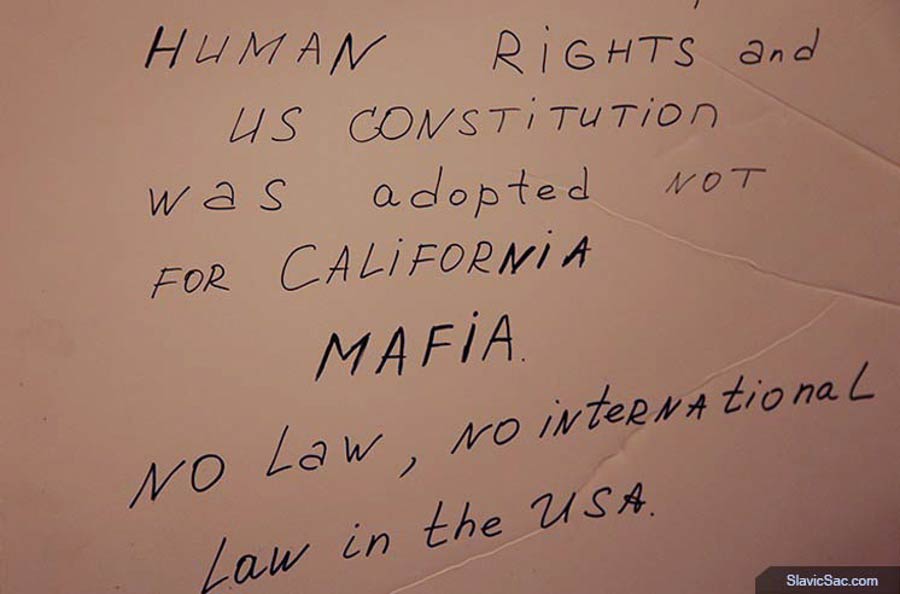 HUMAN RiGHTS and
US CONSTiTUTiON
was adopted NOT
FOR CALiFORNiA
MAFiA.
NO Law, NO iNteRNAtional
Law in the USA.
SlavicSac.com